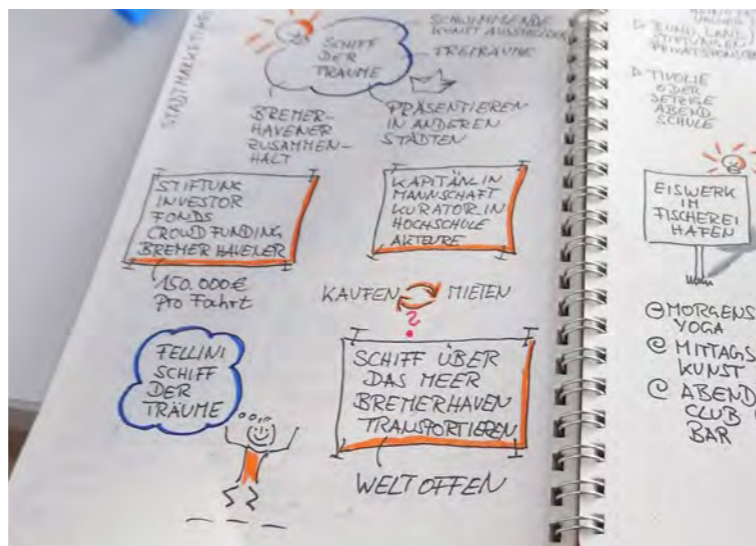 STADTMARKETING
SCHIFF
DER
TRÄUME
SCHWIMMENDE
KUNST
TREIRÄUME
BREMER-
HAVENER
ZUSAMMEN-
HALT
PRÄSENTIEREN
IN ANDEREN
STÄDTEN
STIFTUNG
INVESTOR
FONDS
CROWDFUNDING
BREMERHAVENER
150.000€
Pro Fahrt
KAPITÄN_IN
MANNSCHAFT
KURATOR_IN
HOCHSCHULE
AKTEURE
KAUFEN MIETEN
?
FELLINI
SCHIFF
DER
TRÄUME
SCHIFF ÜBER
DAS MEER
BREMERHAVEN
TRANSPORTIEREN
WELTOFFEN
BUND, LAND,
STIFTUNGEN,
TIVOLIE
ODER
JETZIGE
ABEND
SCHULE
EISWERK
IM
FISCHEREI
HAFEN
MORGENS
YOGA
MITTAGS
KUNST
ABEND
CLUB
BAR